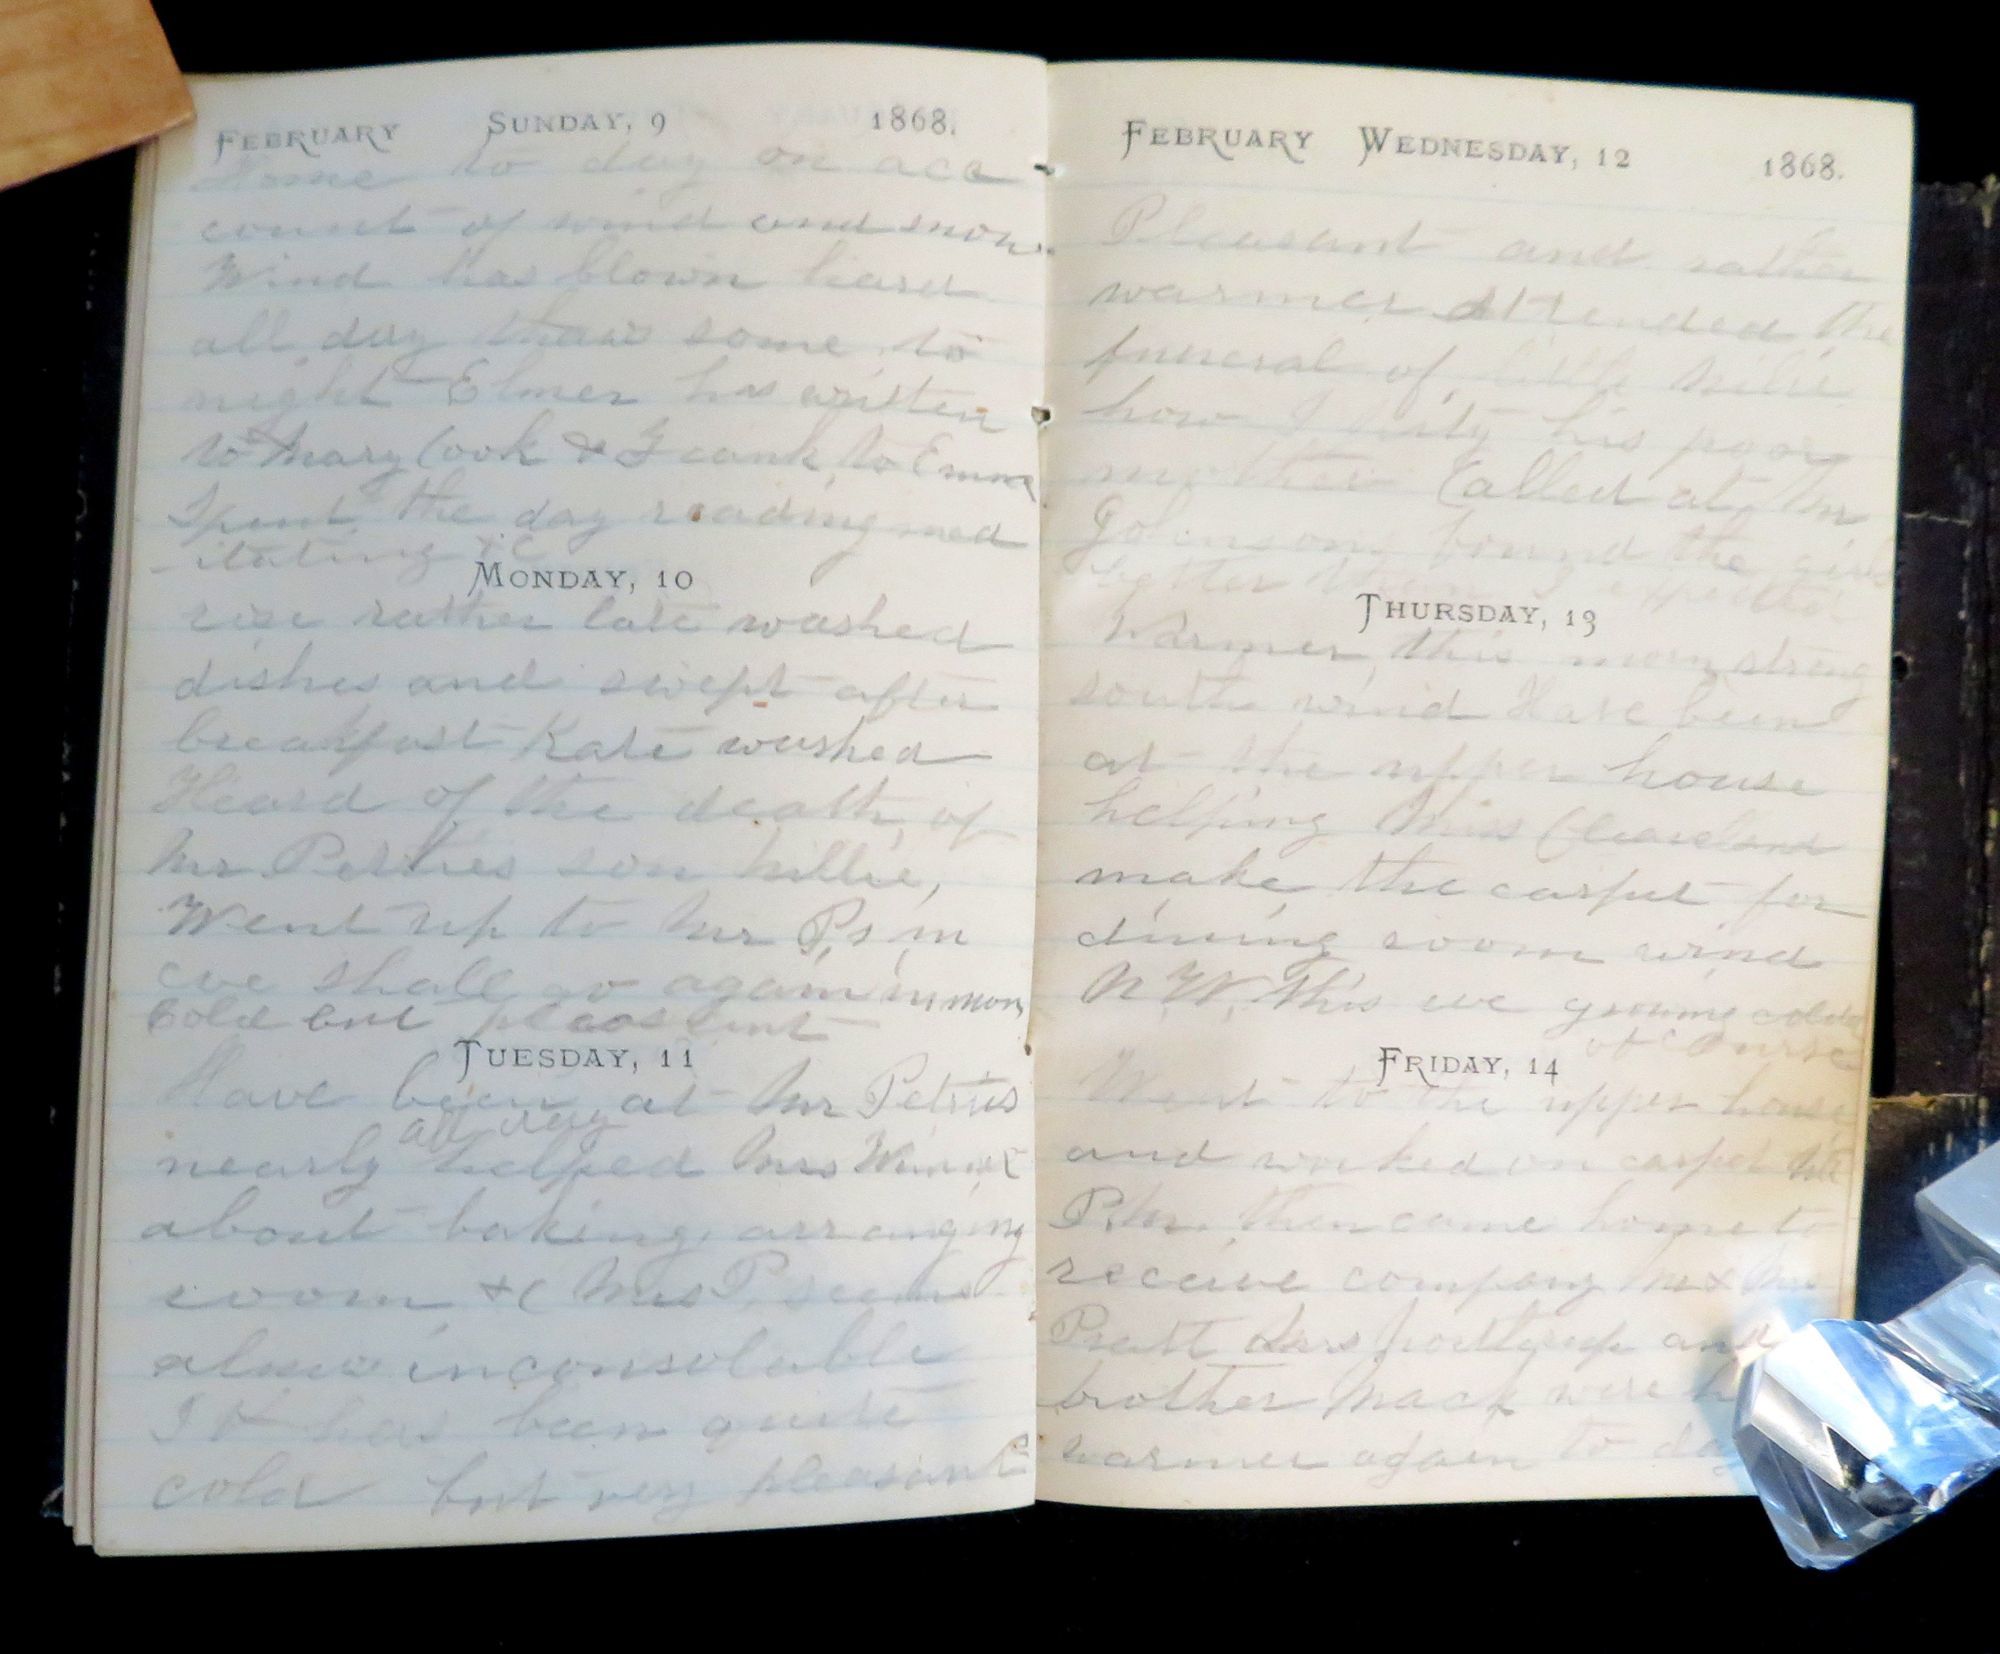 FEBRUARY SUNDAY, 9 1868.
Home to day on acc
count of wind and snow.
Wind has blown hard
all day thaws some to
night Elmer has written
to Mary Cook & Frank to Emma
Spent the day reading med
itating &c
MONDAY, 10
rise rather late washed
dishes and swept after
breakfast Kate washed
Heard of the death of
Mr Petries son Willie,
Went up to Mr P,s in
eve shall go again in morn
Cold but pleassant
TUESDAY, 11
Have been at Mr Petries
all day
nearly helped Mrs
about baking, arranging
room &c Mrs P. seems
almost inconsolable
It has been quite
cold but very pleasant
FEBRUARY WEDNESDAY, 12 1868.
Pleasant and rather
warmer Attended the
funeral of little Willie
how I pity his poor
mother Called at Mr
Johnsons found the girls
better than I expected
THURSDAY, 13
Warmer this morn strong
south wind Have been
at the upper house
helping Miss Cleaveland
make the carpet for
dining room wind
N.W. this eve growing colder
of Course
FRIDAY, 14
Went to the upper house
and worked on carpet till
P.M. then came home to
receive company Mr & Mrs
Pratt Mrs and
brother Mack were h
warmer again to day